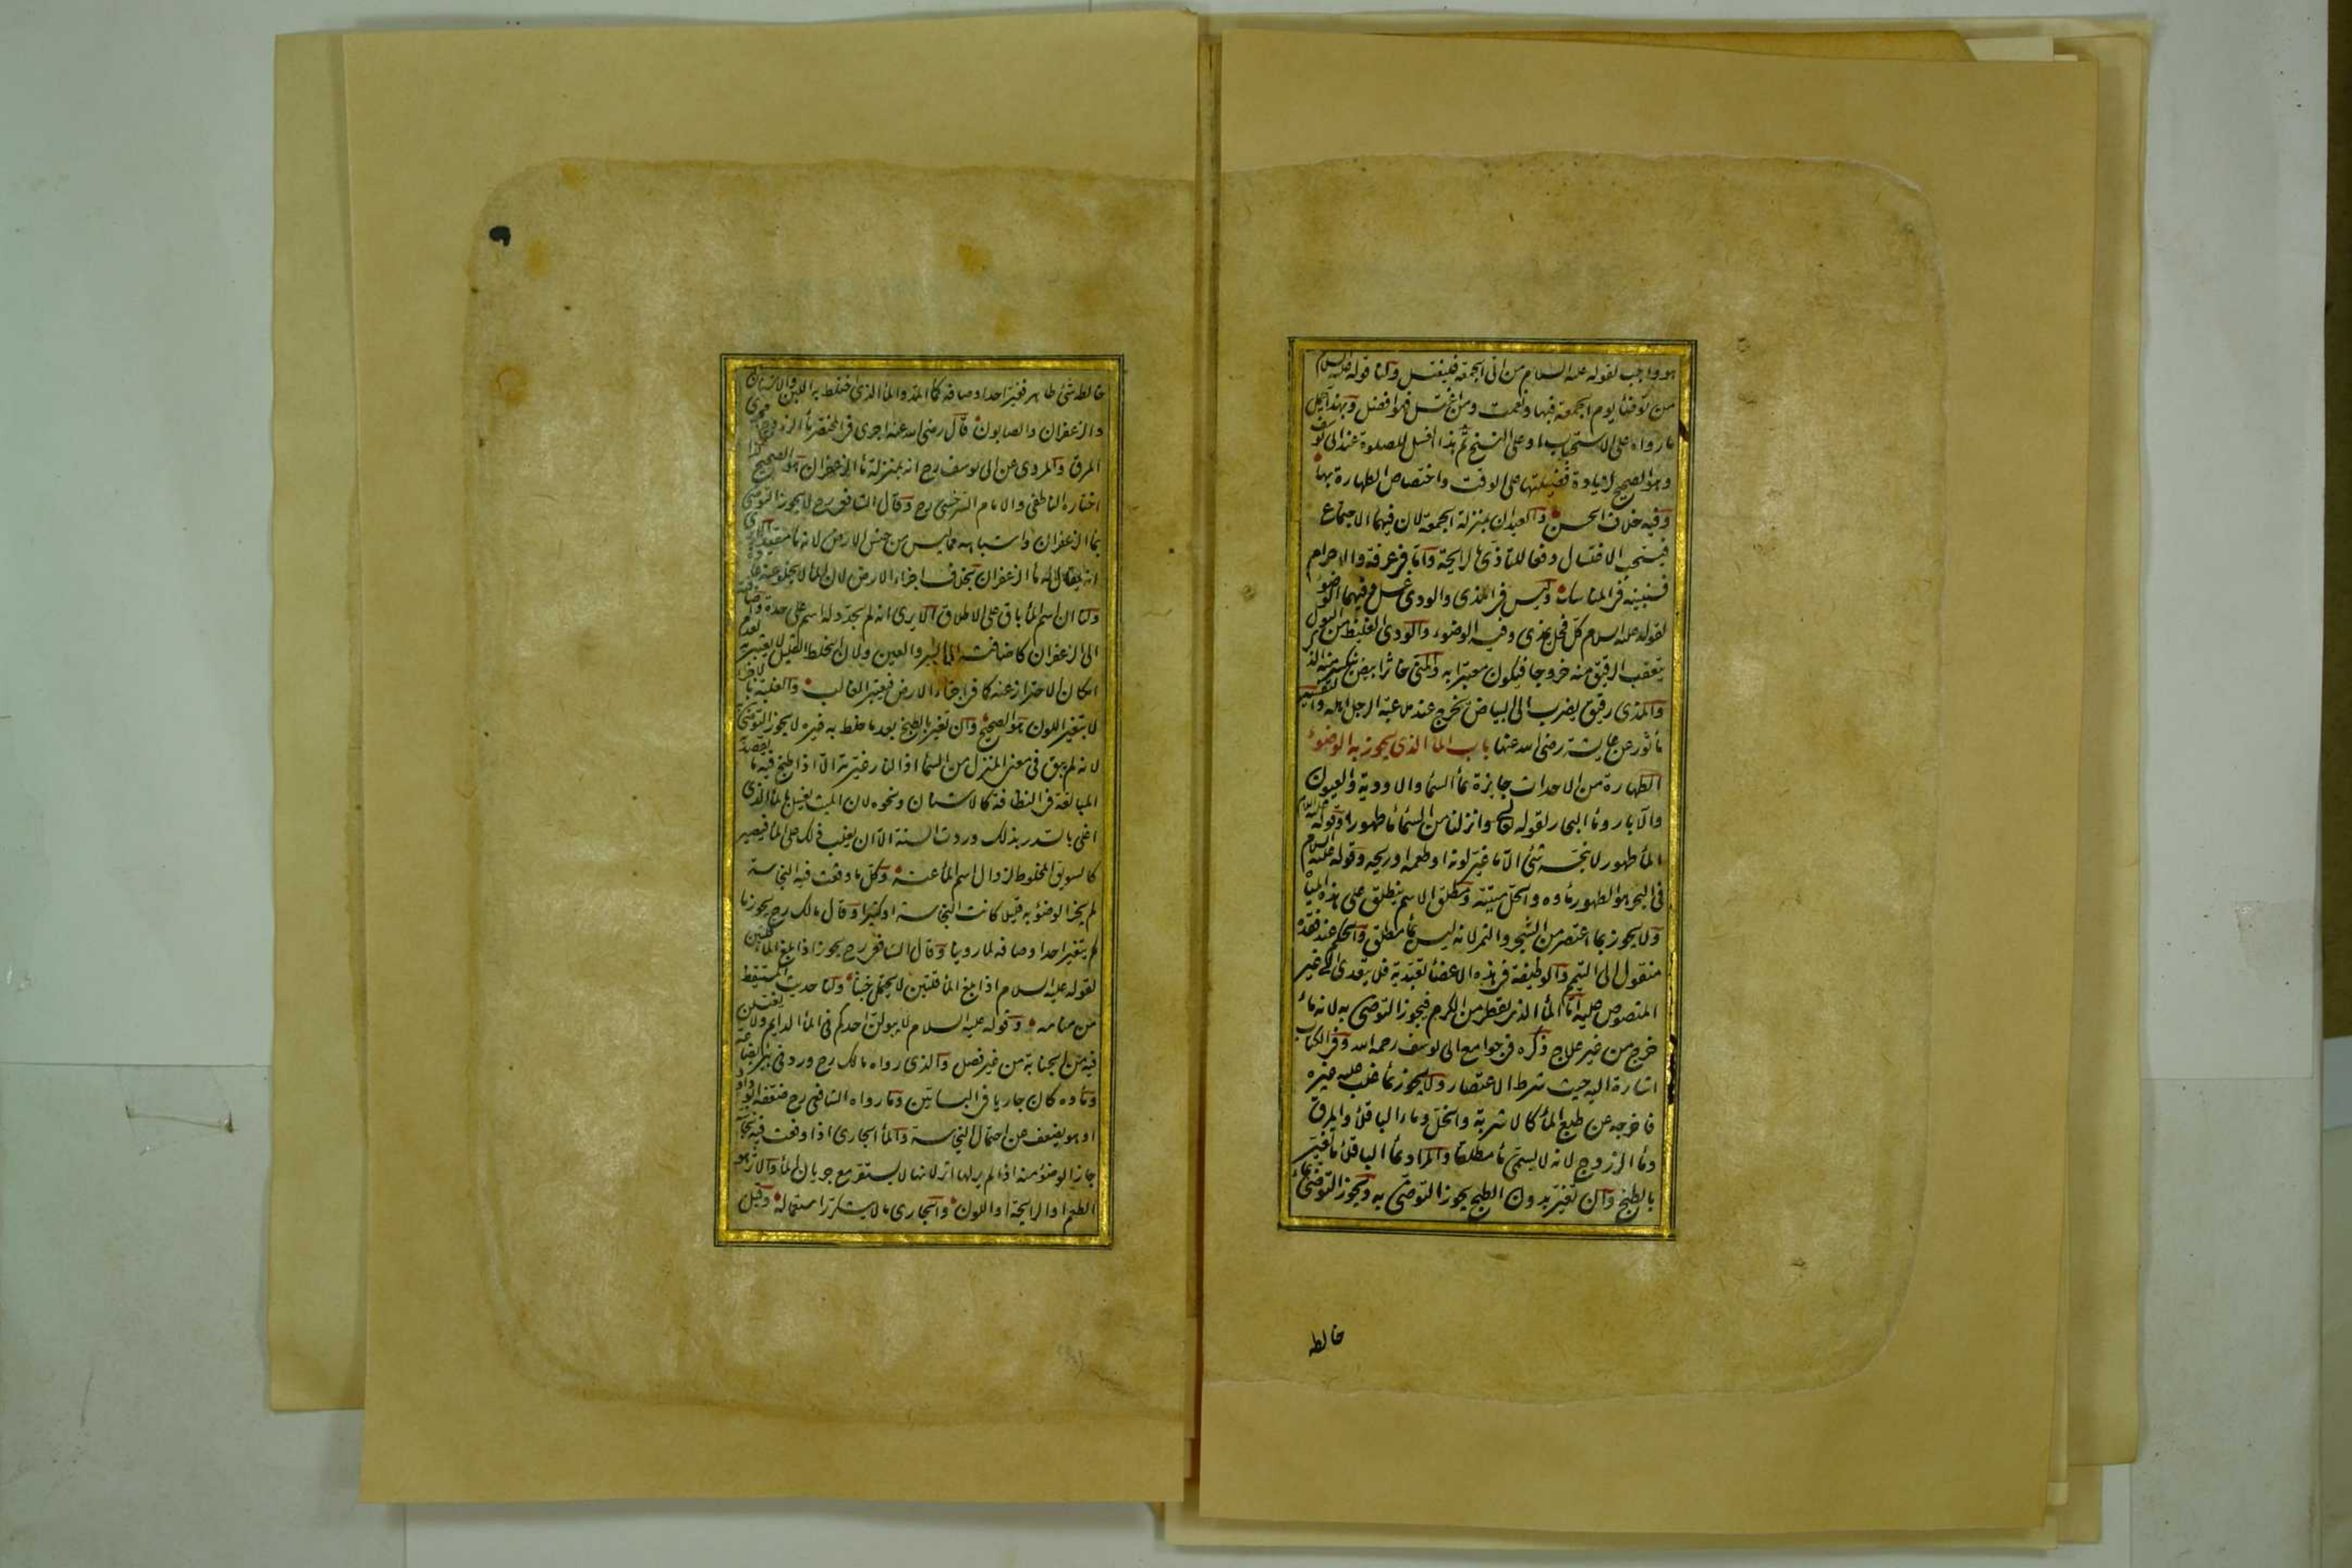 هو واجب لقوله عليه السلام من اتى الجمعة فليغتسل ولنا قوله عليه السلام
من توضأ يوم الجمعة فبها ونعمت ومن اغتسل فهو افضل وبهذا يحمل
ما رواه على الاستحباب او على النسخ ثم هذا الغسل للصلوة عند ابى يوسف
وهو الصحيح لزيادة فضيلتها على الوقت واختصاص الطهارة بها
وفيه خلاف الحسن والعيدان بمنزلة الجمعة لان فيهما الاجتماع
فيستحب الاغتسال دفعا للتأذى بالرايحة واما فى عرفة والاحرام
فسنبينه فى المناسك وليس فى المذى والودى غسل وفيهما الوضوء
لقوله عليه السلام كل فحل يمذى وفيه الوضوء والودى الغليظ من البول
يتعقب الرقيق منه خروجا فيكون معتبرا به والمنى خاثر ابيض ينكسر منه الذكر
والمذى رقيق يضرب الى البياض يخرج عند ملاعبة الرجل اهله والتفسير
مأثور عن عايشة رضى الله عنها باب الماء الذى يجوز به الوضوء
الطهارة من الاحداث جايزة بماء السماء والاودية والعيون
والآبار وماء البحار لقوله تعالى وانزلنا من السماء ماء طهورا وقوله عليه السلام
الماء طهور لا ينجسه شئ الا ما غير لونه او طعمه او ريحه وقوله عليه السلام
فى البحر هو الطهور ماءه والحل ميتته ومطلق الاسم ينطلق على هذه المياه
ولا يجوز بما اعتصر من الشجر والثمر لانه ليس بماء مطلق والحكم عند فقده
منقول الى التيمم والوظيفة فى هذه الاعضاء تعبدية فلا يتعدى الى غير
المنصوص عليه اما الماء الذى يقطر من الكرم فيجوز التوضى به لانه ماء
خرج من غير علاج ذكره فى جوامع ابى يوسف رحمه الله وفى الكتاب
اشارة اليه حيث شرط الاعتصار ولا يجوز بماء غلب عليه غيره
فاخرجه عن طبع الماء كالاشربة والخل وماء الباقلاء والمرق
وماء الزردج لانه لا يسمى ماء مطلقا والمراد بماء الباقلاء ما تغير
بالطبخ وان تغير بدون الطبخ يجوز التوضى به ويجوز التوضى بماء
خالطه
خالطه شئ طاهر فغير احد اوصافه كماء المد والماء الذى اختلط به اللبن والاشنان
والزعفران والصابون قال رضى الله عنه اجرى فى المختصر ماء الزردج مجرى
المرق والمروى عن ابى يوسف رح انه بمنزلة ماء الزعفران هو الصحيح كذا
اختاره الناطفى والامام السرخسى رح وقال الشافعى رح لا يجوز التوضى
بماء الزعفران واشباهه مما ليس من جنس الارض لانه ماء مقيد الا يرى
انه يقال له ماء الزعفران بخلاف اجزاء الارض لان الماء لا يخلو عنه عادة
ولنا ان اسم الماء باق على الاطلاق الا يرى انه لم يتجدد له اسم على حدة واضافته
الى الزعفران كاضافته الى البير والعين ولان الخلط القليل لا يعتبر به لعدم
امكان الاحتراز عنه كما فى اجزاء الارض فيعتبر الغالب والغلبة بالاجزاء
لا بتغير اللون هو الصحيح وان تغير بالطبخ بعد ما خلط به غيره لا يجوز التوضى
لانه لم يبق فى معنى المنزل من السماء اذ النار غيرته الا اذا طبخ فيه ما يقصد به
المبالغة فى النظافة كالاشنان ونحوه لان الميت يغسل بالماء الذى
اغلى بالسدر بذلك وردت السنة الا ان يغلب ذلك على الماء فيصير
كالسويق المخلوط لزوال اسم الماء عنه وكل ما وقعت فيه النجاسة
لم يجز الوضوء به قليلا كانت النجاسة او كثيرا وقال مالك رح يجوز ما
لم يتغير احد اوصافه لما روينا وقال الشافعى رح يجوز اذا بلغ الماء قلتين
لقوله عليه السلام اذا بلغ الماء قلتين لا يحتمل خبثا ولنا حديث المستيقظ
من منامه وقوله عليه السلام لا يبولن احدكم فى الماء الدايم ولا يغتسلن
فيه من الجنابة من غير فصل والذى رواه مالك رح ورد فى بير بضاعة
وماءه كان جاريا فى البساتين وما رواه الشافعى رح ضعفه ابو داود
او هو يضعف عن احتمال النجاسة والماء الجارى اذا وقعت فيه نجاسة
جاز الوضوء منه اذا لم ير لها اثر لانها لا يستقر مع جريان الماء والاثر هو
الطعم او الرايحة او اللون والجارى ما لا يتكرر استعماله وقيل